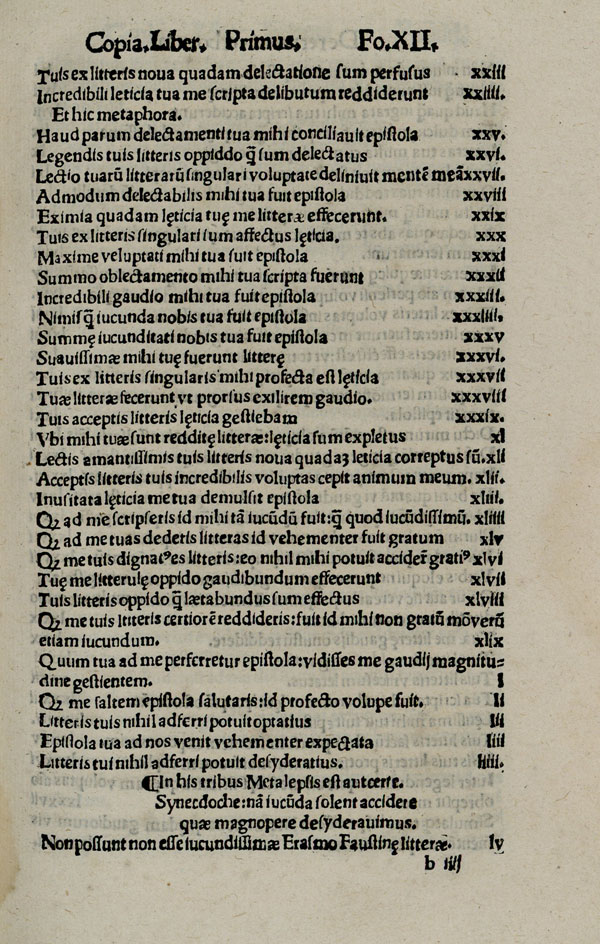 Copia. Liber. Primus. Fo.XII.
Tuis ex litteris noua quadam delectatione sum perfusus xxiii
Incredibili leticia tua me scripta delibutum reddiderunt xxiiii.
Et hic metaphora.
Haud parum delectamenti tua mihi conciliauit epistola xxv.
Legendis tuis litteris oppiddo q̃ sum delectatus xxvi.
Lectio tuarũ litterarũ singulari voluptate deliniuit mentẽ meã xxvii.
Admodum delectabilis mihi tua fuit epistola xxviii
Eximia quadam lęticia tuę me litteræ effecerunt. xxix
Tuis ex litteris singulari sum affectus lęticia. xxx
Maxime voluptati mihi tua fuit epistola xxxi
Summo oblectamento mihi tua scripta fuerunt xxxii
Incredibili gaudio mihi tua fuit epistola xxxiii.
Nimisq̃ iucunda nobis tua fuit epistola xxxiiii.
Summę iucunditati nobis tua fuit epistola xxxv
Suauissimæ mihi tuę fuerunt litterę xxxvi.
Tuis ex litteris singularis mihi profecta est lęticia xxxvii
Tuæ litteræ fecerunt vt prorsus exilirem gaudio. xxxviii
Tuis acceptis litteris lęticia gestiebam xxxix.
Vbi mihi tuæ sunt redditę litteræ: lęticia sum expletus xl
Lectis amantissimis tuis litteris noua quadaȝ leticia correptus sũ. xli
Acceptis litteris tuis incredibilis voluptas cepit animum meum. xlii.
Inusitata lęticia me tua demulsit epistola xliii.
Qȝ ad me scripseris id mihi tã iucũdũ fuit: q̃ quod iucũdissimũ. xliiii
Qȝ ad me tuas dederis litteras id vehementer fuit gratum xlv
Qȝ me tuis dignatꝰ es litteris: eo nihil mihi potuit accider̃ gratiꝰ xlvi
Tuę me litterulę oppido gaudibundum effecerunt xlvii
Tuis litteris oppido q̃ lætabundus sum effectus xlviii
Qȝ me tuis litteris certiorẽ reddideris: fuit id mihi non gratũ mõ verũ
etiam iucundum. xlix
Quum tua ad me perferretur epistola: vidisses me gaudij magnitu=
dine gestientem. l
Qȝ me saltem epistola salutaris: id profecto volupe fuit. li
Litteris tuis nihil adferri potuit optatius lii
Epistola tua ad nos venit vehementer expectata liii
Litteris tui nihil adferri potuit desyderatius. liiii.
¶In his tribus Metalepsis est aut certe.
Synecdoche: nã iucũda solent accidere
quæ magnopere desyderauimus.
Non possunt non esse iucundissimæ Erasmo Faustinę litteræ. lv
b iiij